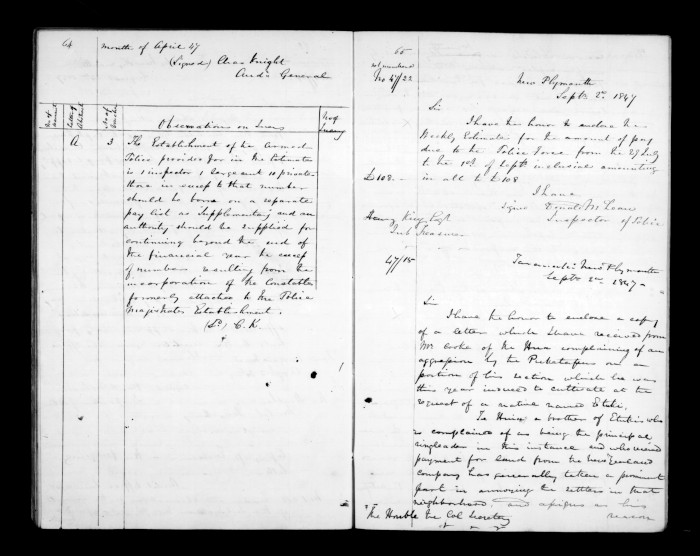 64
month of April 47
(Signed) Chas Knight
Aud. General
No of
Letting of
No of
Observations on Issues
No of
A
3
The Establishment of the Armed
Police provided for in the Estimates
is 1 inspector 1 Sargeant 10 privates
those in excess to that number
should be borne on a separate
pay list as Supplementary and an
authority should be supplied for
continuing beyond the end of
the financial year the excess
of numbers resulting from the
incorporation of the Constables
formerly attached to the Police
Magistrates Establishment.
(Sd) C.K.
65
No 47/22
New Plymouth
Septr 2nd 1847
Sir
I have the honor to enclose the
Weekly Estimate for the amount of pay
due to the Police Force from the 29 July
to the 1st of Septr inclusive amounting
£108 —
in all to £108
I have
signed Donald McLean
Inspector of Police
Henry King Esqr
Sub Treasurer
47/15
Taranaki New Plymouth
Septr 2nd 1847 —
Sir
I have the honor to enclose a copy
of a letter which I have received from
Mr Cooke of the Hua complaining of an
aggression by the Puketapus on a
portion of his section which he was
this year induced to cultivate at the
request of a native named Etiki.
Ta Hniu a brother of Etikis who
is complained of as being the principal
ringleader in this instance and who received
payment for land from the New Zealand
company has generally taken a prominent
part in annoying the settlers in that
neighborhood, and assigns as his
reason
The Honble the Col Secretary